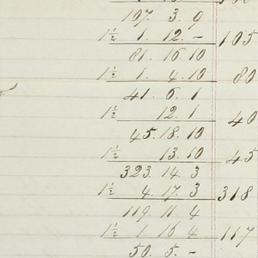 107. 3. 9
1½ 1. 12. - 105
81. 16. 10
1½ 1. 4. 10 80
41. 6. 1
1½ 12. 1 40
45. 18. 10
1½ 13. 10 45
323. 14. 3
1½ 4. 17. 3 318
119. 11. 4
1½ 1. 16. 4 117
50. 5. -